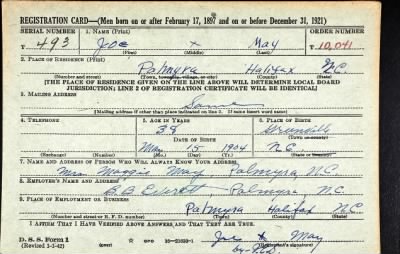 REGISTRATION CARD—(Men born on or after February 17, 1897 and on or before December 31, 1921)
SERIAL NUMBER 1. NAME (Print) ORDER NUMBER
T 493 Joe x May T 10,041
(First) (Middle) (Last)
2. PLACE OF RESIDENCE (Print)
Palmyra Halifax N.C.
(Number and street) (Town, township, village, or city) (County) (State)
[THE PLACE OF RESIDENCE GIVEN ON THE LINE ABOVE WILL DETERMINE LOCAL BOARD
JURISDICTION; LINE 2 OF REGISTRATION CERTIFICATE WILL BE IDENTICAL]
3. MAILING ADDRESS
Same
[Mailing address if other than place indicated on line 2. If same insert word same]
4. TELEPHONE 5. AGE IN YEARS 6. PLACE OF BIRTH
38 Grenville
DATE OF BIRTH (Town or county)
May 15 1904 N.C.
(Exchange) (Number) (Mo.) (Day) (Yr.) (State or country)
7. NAME AND ADDRESS OF PERSON WHO WILL ALWAYS KNOW YOUR ADDRESS
Mrs. Maggie May Palmyra N.C.
8. EMPLOYER'S NAME AND ADDRESS
B.B. Everett, Palmyra N.C.
9. PLACE OF EMPLOYMENT OR BUSINESS
Palmyra Halifax N.C.
(Number and street or R. F. D. number) (Town) (County) (State)
I AFFIRM THAT I HAVE VERIFIED ABOVE ANSWERS AND THAT THEY ARE TRUE.
D. S. S. Form 1
(Revised 1-5-42) GPO 16—21630-1 Joe x May
(Registrant's signature)